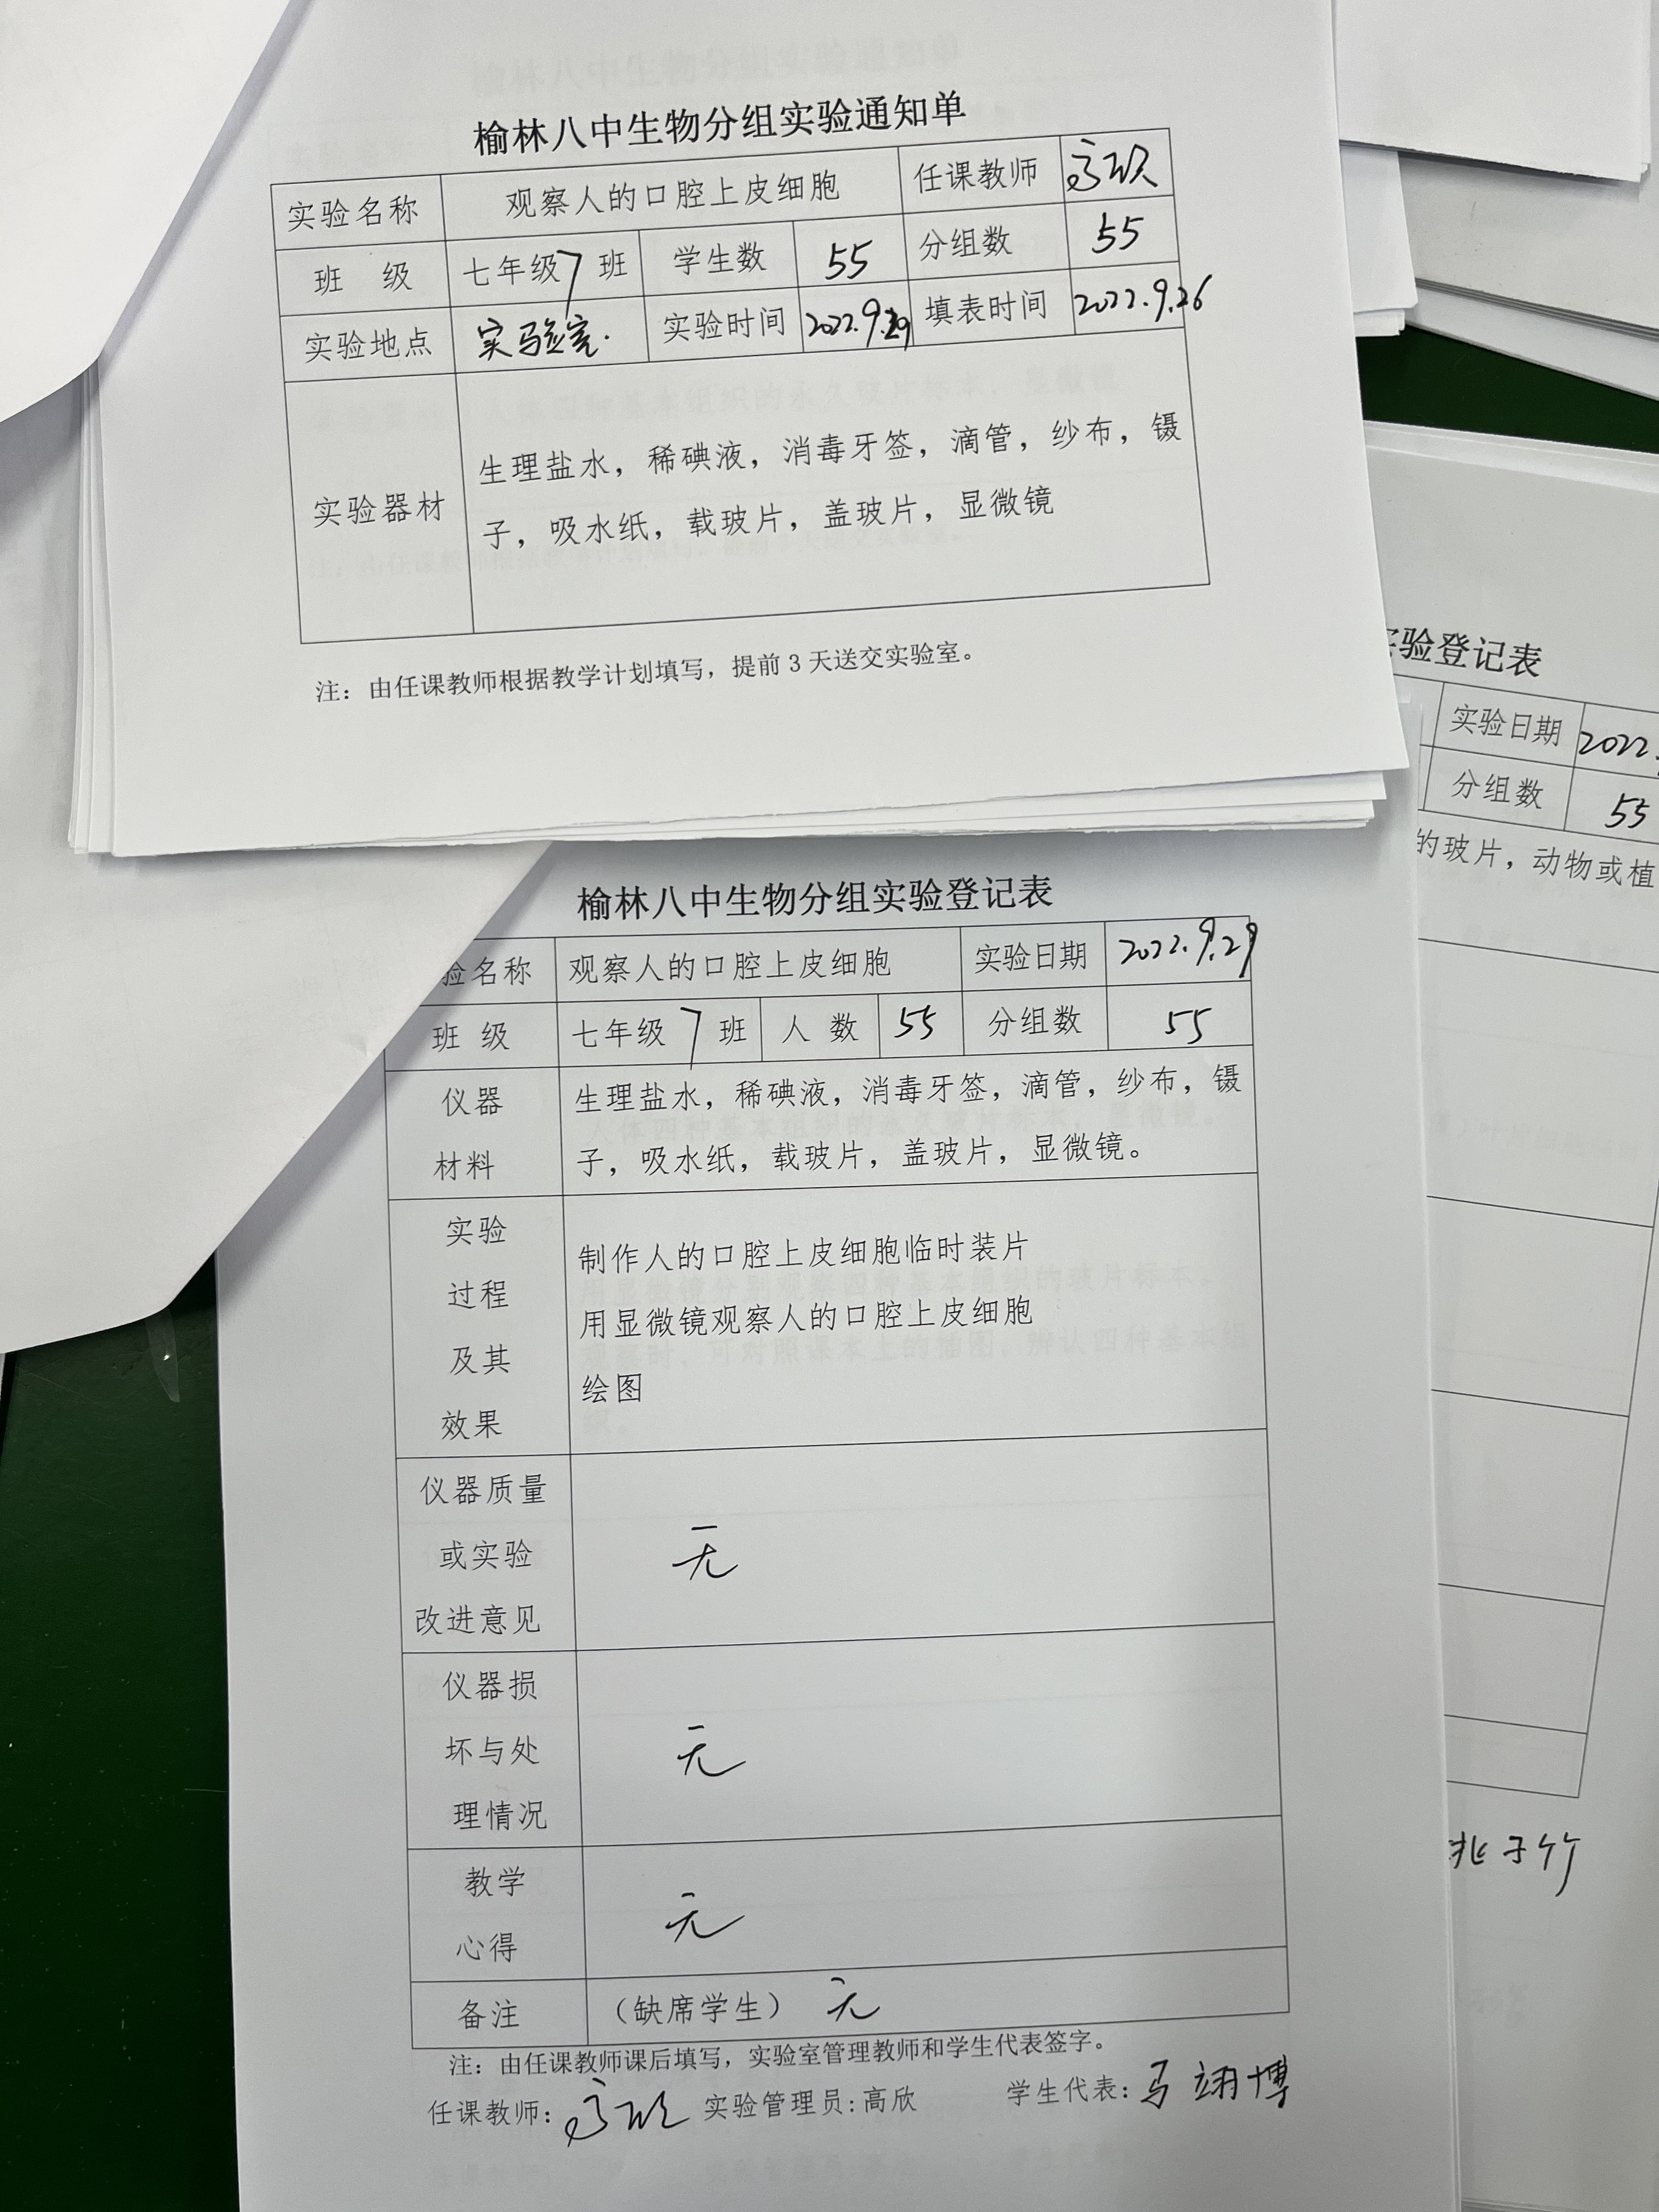 榆林八中生物分组实验通知单
实验名称 观察人的口腔上皮细胞 任课教师 高欣
班 级 七年级7班 学生数 55 分组数 55
实验地点 实验室. 实验时间 2022.9.29 填表时间 2022.9.26
实验器材 生理盐水，稀碘液，消毒牙签，滴管，纱布，镊
子，吸水纸，载玻片，盖玻片，显微镜
注：由任课教师根据教学计划填写，提前3天送交实验室。
榆林八中生物分组实验登记表
验名称 观察人的口腔上皮细胞 实验日期 2022.9.29
班 级 七年级7班 人 数 55 分组数 55
仪器
材料
生理盐水，稀碘液，消毒牙签，滴管，纱布，镊
子，吸水纸，载玻片，盖玻片，显微镜。
实验
过程
及其
效果
制作人的口腔上皮细胞临时装片
用显微镜观察人的口腔上皮细胞
绘图
仪器质量
或实验
改进意见
无
仪器损
坏与处
理情况
无
教学
心得
无
备注 （缺席学生） 无
注：由任课教师课后填写，实验室管理教师和学生代表签字。
任课教师：高欣 实验管理员:高欣 学生代表：马翊博
验登记表
实验日期 2022.
分组数 55
的玻片，动物或植
子竹